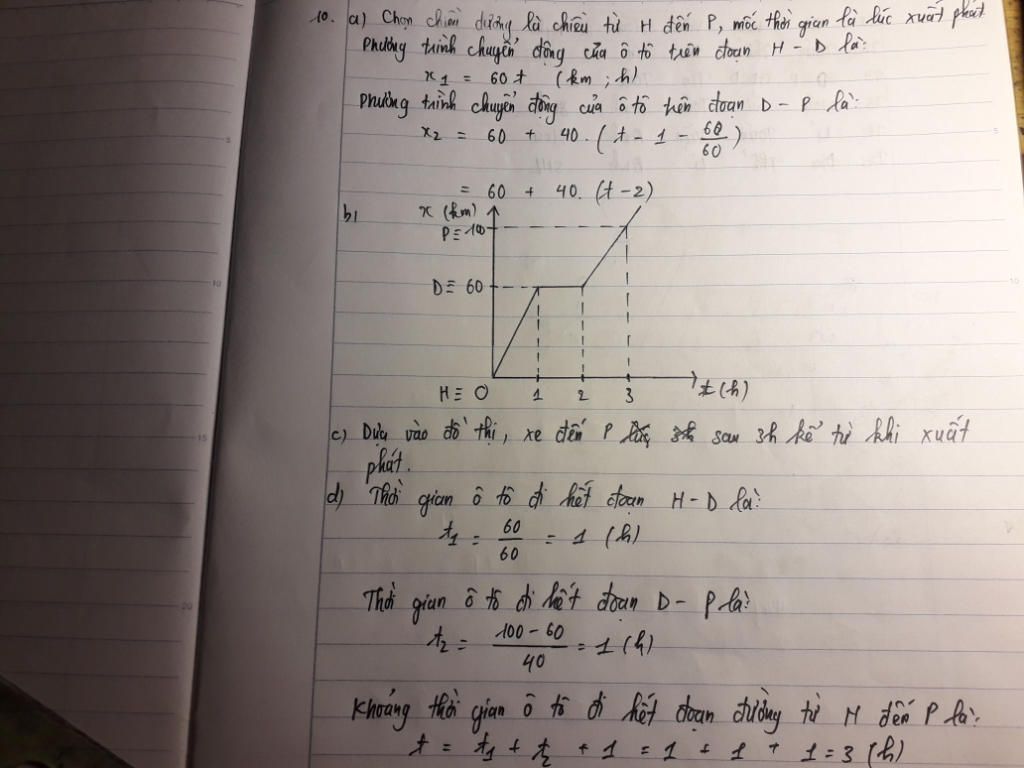 10. a) Chọn chiều dương là chiều từ H đến P, mốc thời gian là lúc xuất phát
Phương trình chuyển động của ô tô trên đoạn H - D là:
x₁ = 60t (km ; h)
Phương trình chuyển động của ô tô trên đoạn D - P là:
x₂ = 60 + 40. (t - 1 - 60/60)
= 60 + 40. (t - 2)
b)
x (km)
P ≡ 100
D ≡ 60
H ≡ O 1 2 3 t (h)
c) Dựa vào đồ thị, xe đến P sau 3h kể từ khi xuất
phát.
d) Thời gian ô tô đi hết đoạn H - D là:
t₁ = 60/60 = 1 (h)
Thời gian ô tô đi hết đoạn D - P là:
t₂ = (100 - 60)/40 = 1 (h)
Khoảng thời gian ô tô đi hết đoạn đường từ H đến P là:
t = t₁ + t₂ + 1 = 1 + 1 + 1 = 3 (h)